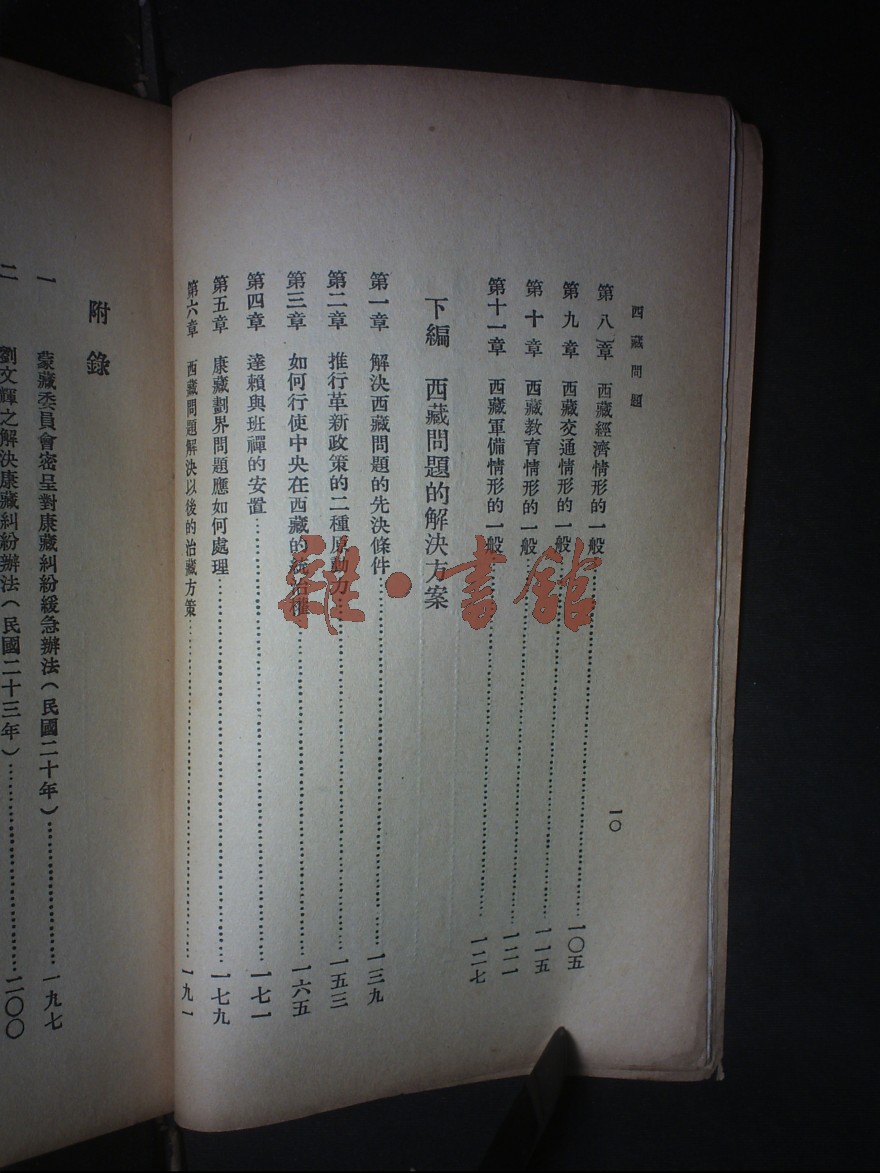 西藏問題
一〇
第八章 西藏經濟情形的一般……一〇五
第九章 西藏交通情形的一般……一一五
第十章 西藏教育情形的一般……一二一
第十一章 西藏軍備情形的一般……一二七
下編 西藏問題的解決方案
第一章 解決西藏問題的先決條件……一三九
第二章 推行革新政策的二種原動力……一五三
第三章 如何行使中央在西藏的統治權……一六五
第四章 達賴與班禪的安置……一七一
第五章 康藏劃界問題應如何處理……一七九
第六章 西藏問題解決以後的治藏方策……一九一
附錄
一 蒙藏委員會密呈對康藏糾紛緩急辦法(民國二十年)……一九七
二 劉文輝之解決康藏糾紛辦法(民國二十三年)……二〇〇
雜·書館